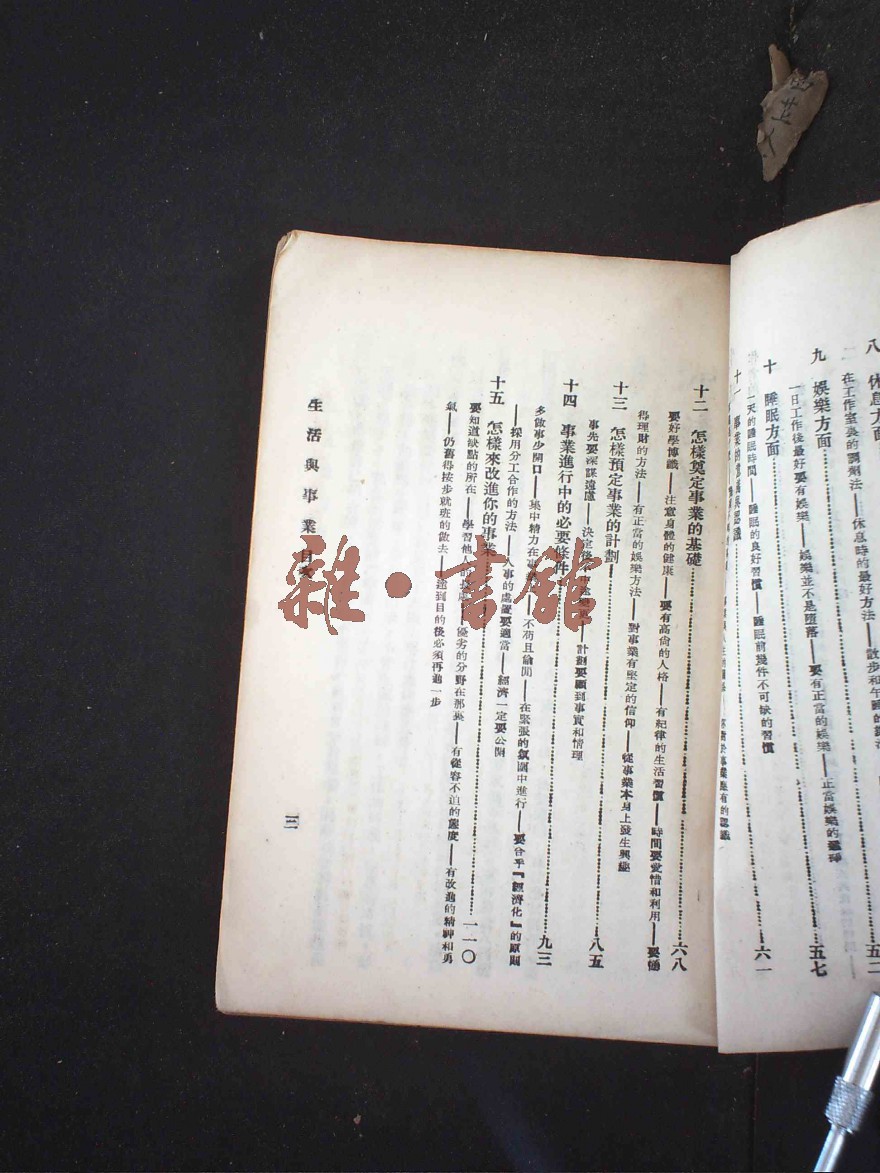 八 休息方面
五二
在工作室裏的調劑法——休息時的最好方法——散步和午睡的
九 娛樂方面……五七
一日工作後最好要有娛樂——娛樂並不是墮落——要有正當的娛樂——正當娛樂的選擇
十 睡眠方面……六一
一天的睡眠時間——睡眠的良好習慣——睡眠前幾件不可缺的習慣
十一 事業的 與認識
十二 怎樣奠定事業的基礎……六八
要好學博識——注意身體的健康——要有高尙的人格——有紀律的生活習慣——時間要愛惜和利用——要懂
得理財的方法——有正當的娛樂方法——對事業有堅定的信仰——從事業本身上發生興趣
十三 怎樣預定事業的計劃……八五
事先要深謀遠慮——決定後 中途變更——計劃要顧到事實和情理
十四 事業進行中的必要條件……九三
多做事少開口——集中精力在事 ——不苟且偸閒——在緊張的氛圍中進行——要合乎『經濟化』的原則
——採用分工合作的方法——人事的處置要適當——經濟一定要公開
十五 怎樣來改進你的事業……一一〇
要知道缺點的所在——學習他人的長處——優劣的分野在那裏——有從容不迫的態度——有改進的精神和勇
氣——仍舊得按步就班的做去——達到目的後必須再進一步
生活與事業 目次
三
雜·書館